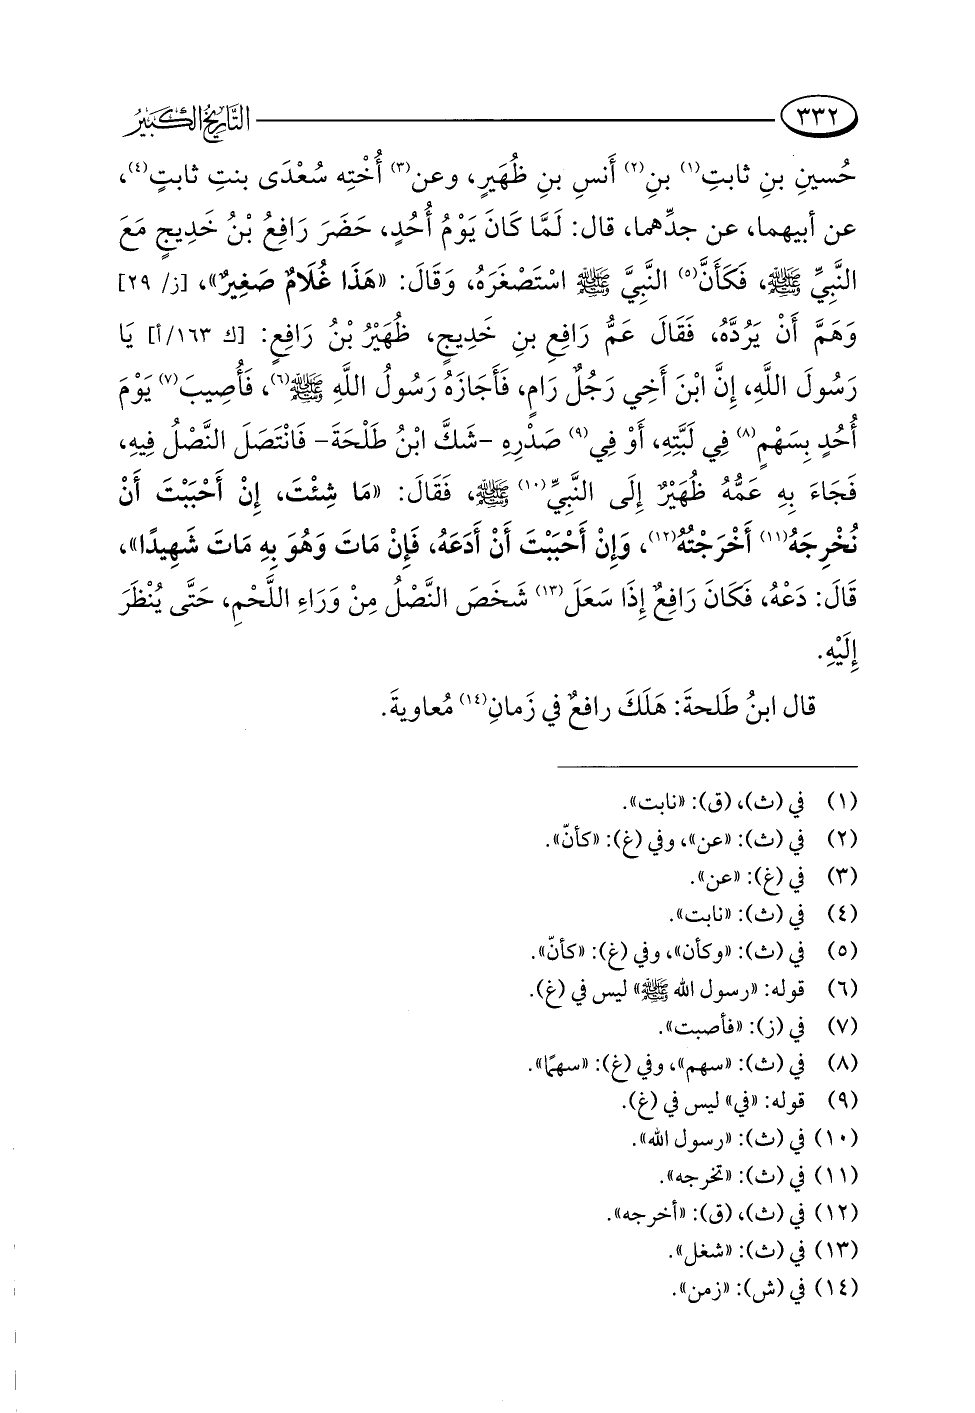 ٣٣٢ التَّارِيخُ الكَبِيرُ
حُسينِ بنِ ثابتِ(١) بنِ(٢) أَنسِ بنِ ظُهَيرٍ، وعن(٣) أُخْتِه سُعْدَى بنتِ ثابتٍ(٤)،
عن أبيهما، عن جدِّهما، قال: لَمَّا كَانَ يَوْمُ أُحُدٍ، حَضَرَ رَافِعُ بْنُ خَدِيجٍ مَعَ
النَّبِيِّ ﷺ، فَكَأَنَّ(٥) النَّبِيَّ ﷺ اسْتَصْغَرَهُ، وَقَالَ: «هَذَا غُلَامٌ صَغِيرٌ»، [ز/ ٢٩]
وَهَمَّ أَنْ يَرُدَّهُ، فَقَالَ عَمُّ رَافِعِ بنِ خَدِيجٍ، ظُهَيْرُ بْنُ رَافِعٍ: [ك ١٦٣/أ] يَا
رَسُولَ اللَّهِ، إِنَّ ابْنَ أَخِي رَجُلٌ رَامٍ، فَأَجَازَهُ رَسُولُ اللَّهِ ﷺ(٦)، فَأُصِيبَ(٧) يَوْمَ
أُحُدٍ بِسَهْمٍ(٨) فِي لَبَّتِهِ، أَوْ فِي(٩) صَدْرِهِ -شَكَّ ابْنُ طَلْحَةَ- فَانْتَصَلَ النَّصْلُ فِيهِ،
فَجَاءَ بِهِ عَمُّهُ ظُهَيْرٌ إِلَى النَّبِيِّ(١٠) ﷺ، فَقَالَ: «مَا شِئْتَ، إِنْ أَحْبَبْتَ أَنْ
نُخْرِجَهُ(١١) أَخْرَجْتُهُ(١٢)، وَإِنْ أَحْبَبْتَ أَنْ أَدَعَهُ، فَإِنْ مَاتَ وَهُوَ بِهِ مَاتَ شَهِيدًا»،
قَالَ: دَعْهُ، فَكَانَ رَافِعٌ إِذَا سَعَلَ(١٣) شَخَصَ النَّصْلُ مِنْ وَرَاءِ اللَّحْمِ، حَتَّى يُنْظَرَ
إِلَيْهِ.
قال ابنُ طَلحةَ: هَلَكَ رافعٌ في زَمانِ(١٤) مُعاويةَ.
(١) في (ث)، (ق): «نابت».
(٢) في (ث): «عن»، وفي (غ): «كأنّ».
(٣) في (غ): «عن».
(٤) في (ث): «نابت».
(٥) في (ث): «وكأن»، وفي (غ): «كأنّ».
(٦) قوله: «رسول الله ﷺ» ليس في (غ).
(٧) في (ز): «فأصبت».
(٨) في (ث): «سهم»، وفي (غ): «سهمًا».
(٩) قوله: «في» ليس في (غ).
(١٠) في (ث): «رسول الله».
(١١) في (ث): «تخرجه».
(١٢) في (ث)، (ق): «أخرجه».
(١٣) في (ث): «شغل».
(١٤) في (ش): «زمن».